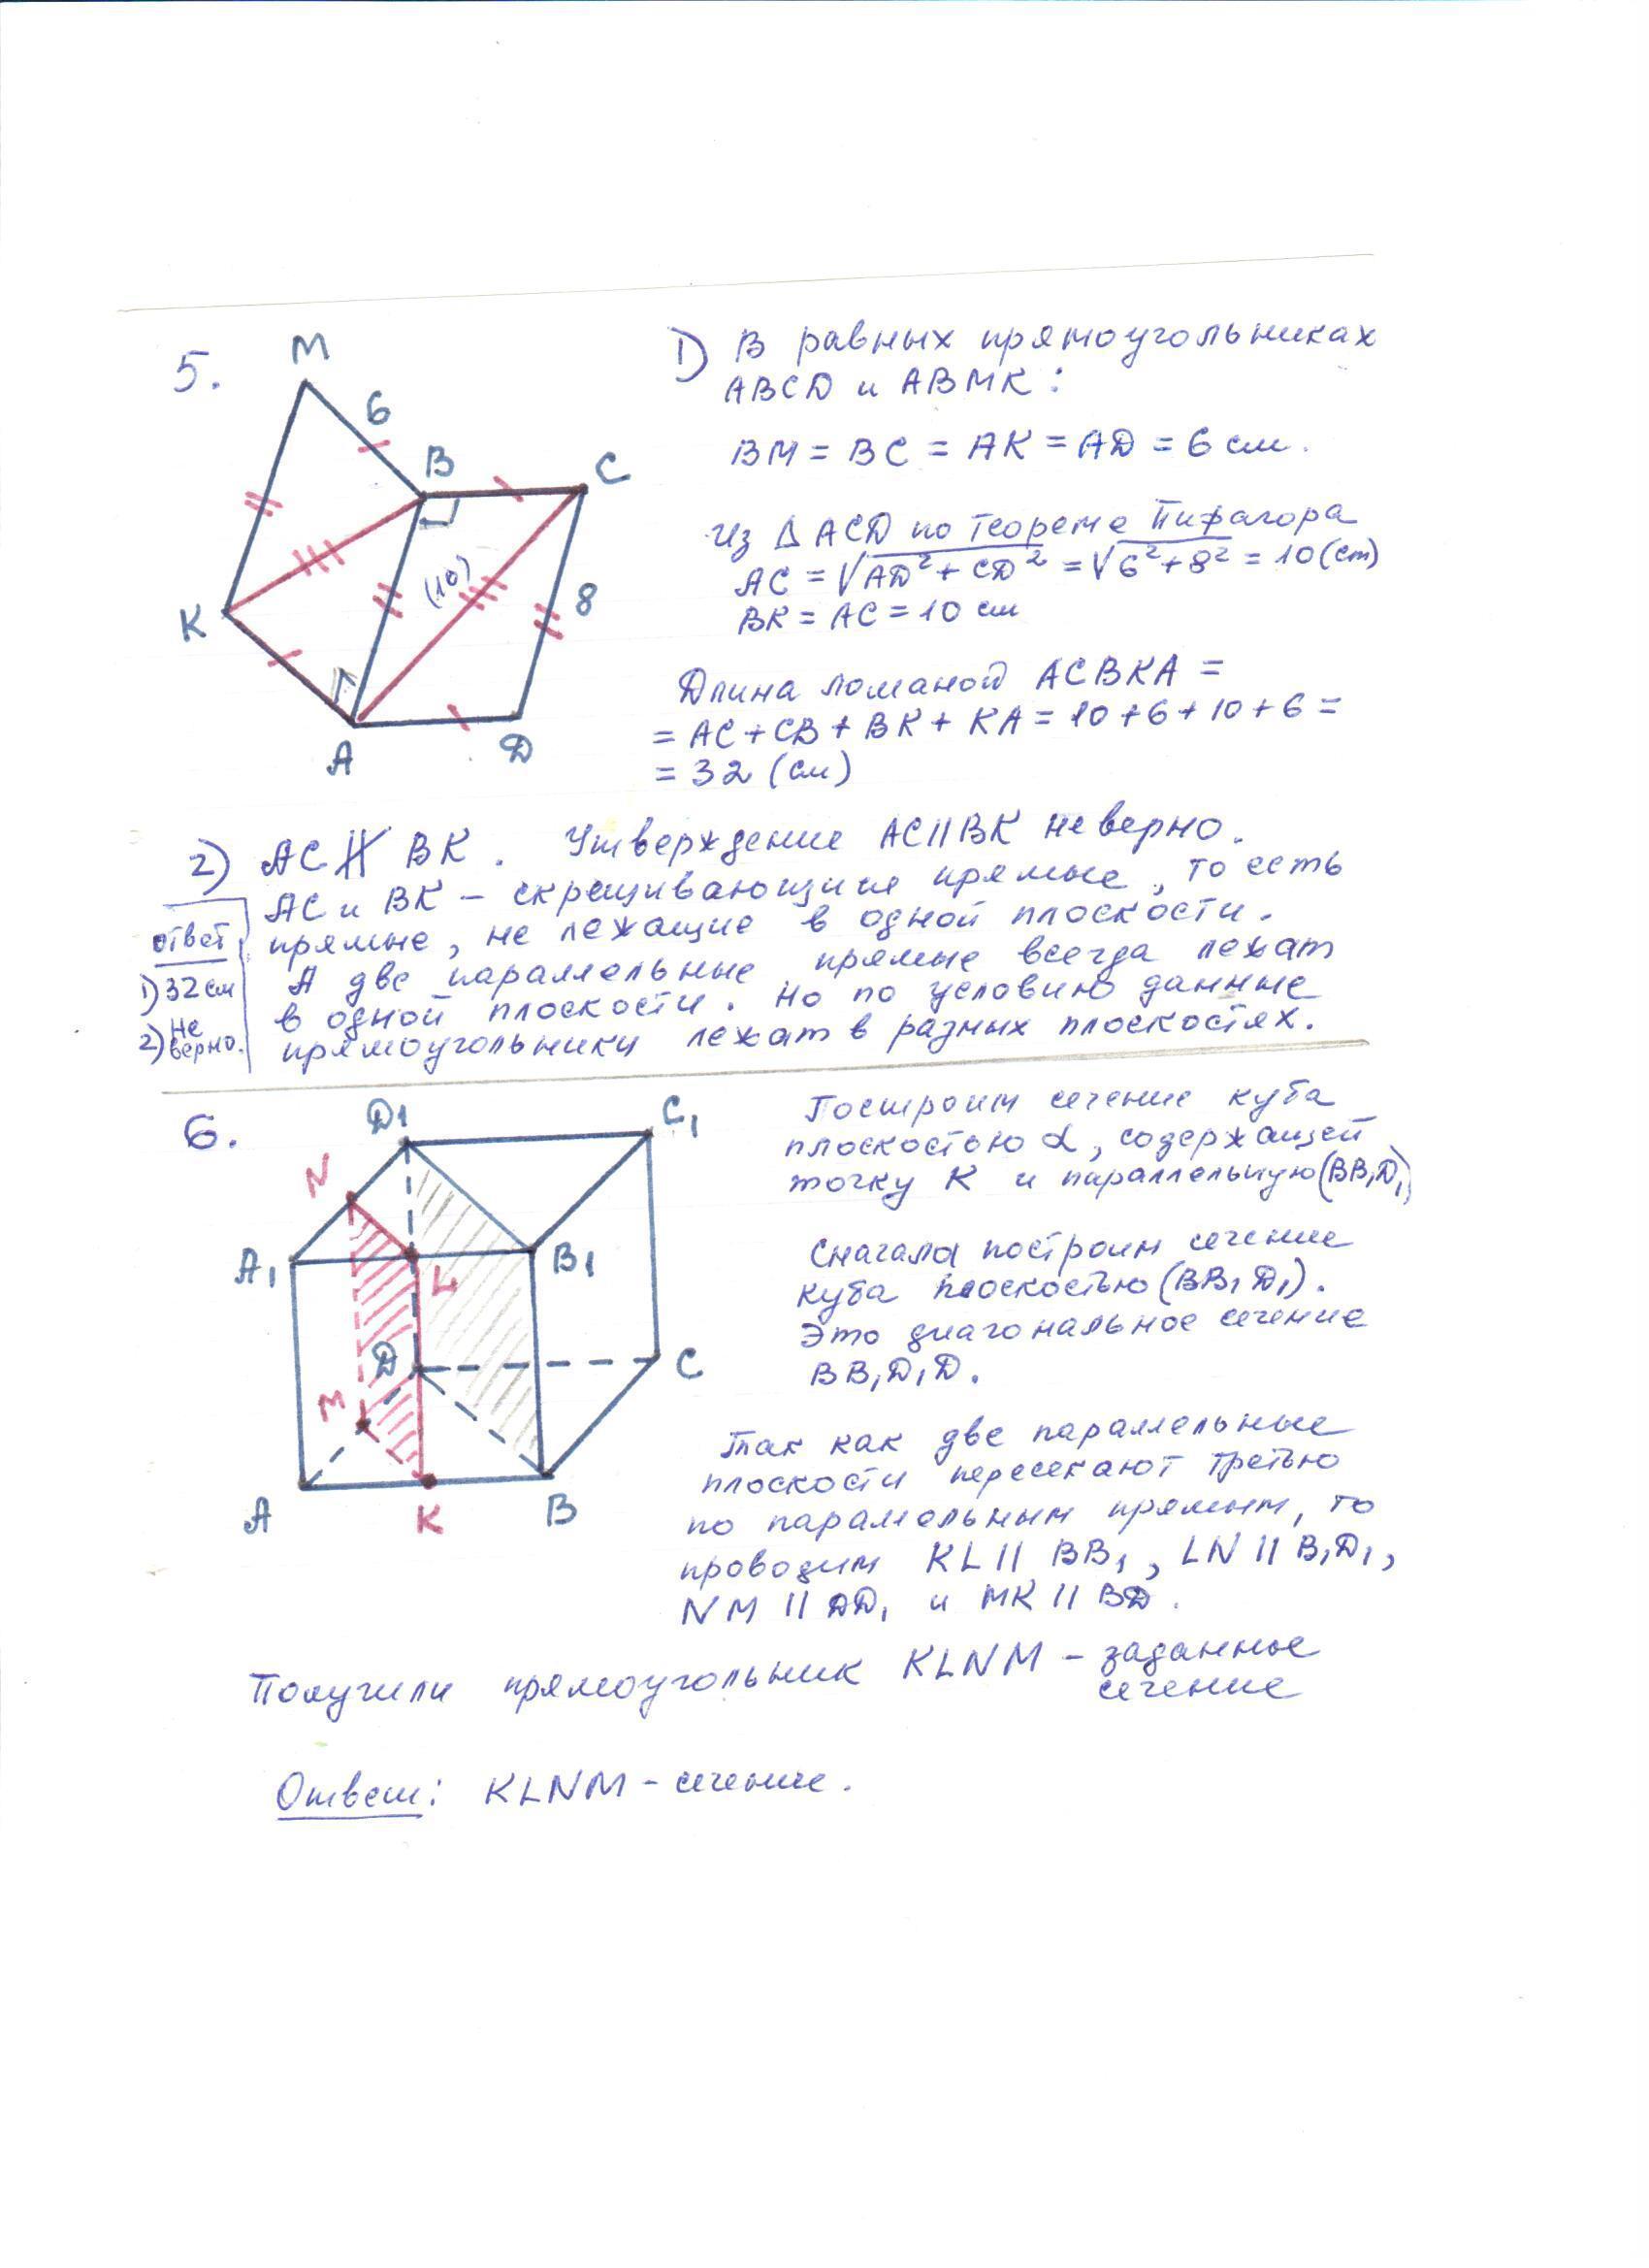 5.
M
6
B
C
K
(10)
8
A
D
1) В равных прямоугольниках
ABCD и ABMK:
BM = BC = AK = AD = 6 см.
Из Δ ACD по теореме Пифагора
AC = √AD² + CD² = √6² + 8² = 10 (см)
BK = AC = 10 см
Длина ломаной ACBKA =
= AC + CB + BK + KA = 10 + 6 + 10 + 6 =
= 32 (см)
2) AC ∦ BK. Утверждение AC || BK не верно.
AC и BK – скрещивающиеся прямые, то есть
прямые, не лежащие в одной плоскости.
А две параллельные прямые всегда лежат
в одной плоскости. Но по условию данные
прямоугольники лежат в разных плоскостях.
ответ
1) 32 см
2) не
верно.
6.
D1
C1
N
A1
L
B1
D
C
M
A
K
B
Построим сечение куба
плоскостью α, содержащей
точку K и параллельную (BB1D1)
Сначала построим сечение
куба плоскостью (BB1D1).
Это диагональное сечение
BB1D1D.
Так как две параллельные
плоскости пересекают третью
по параллельным прямым, то
проводим KL || BB1, LN || B1D1,
NM || DD1 и MK || BD.
Получили прямоугольник KLNM – заданное
сечение
Ответ: KLNM – сечение.